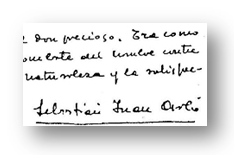 don precioso. Era como
del entre
naturaleza y la satisfac-
Sebastián Juan Arbó